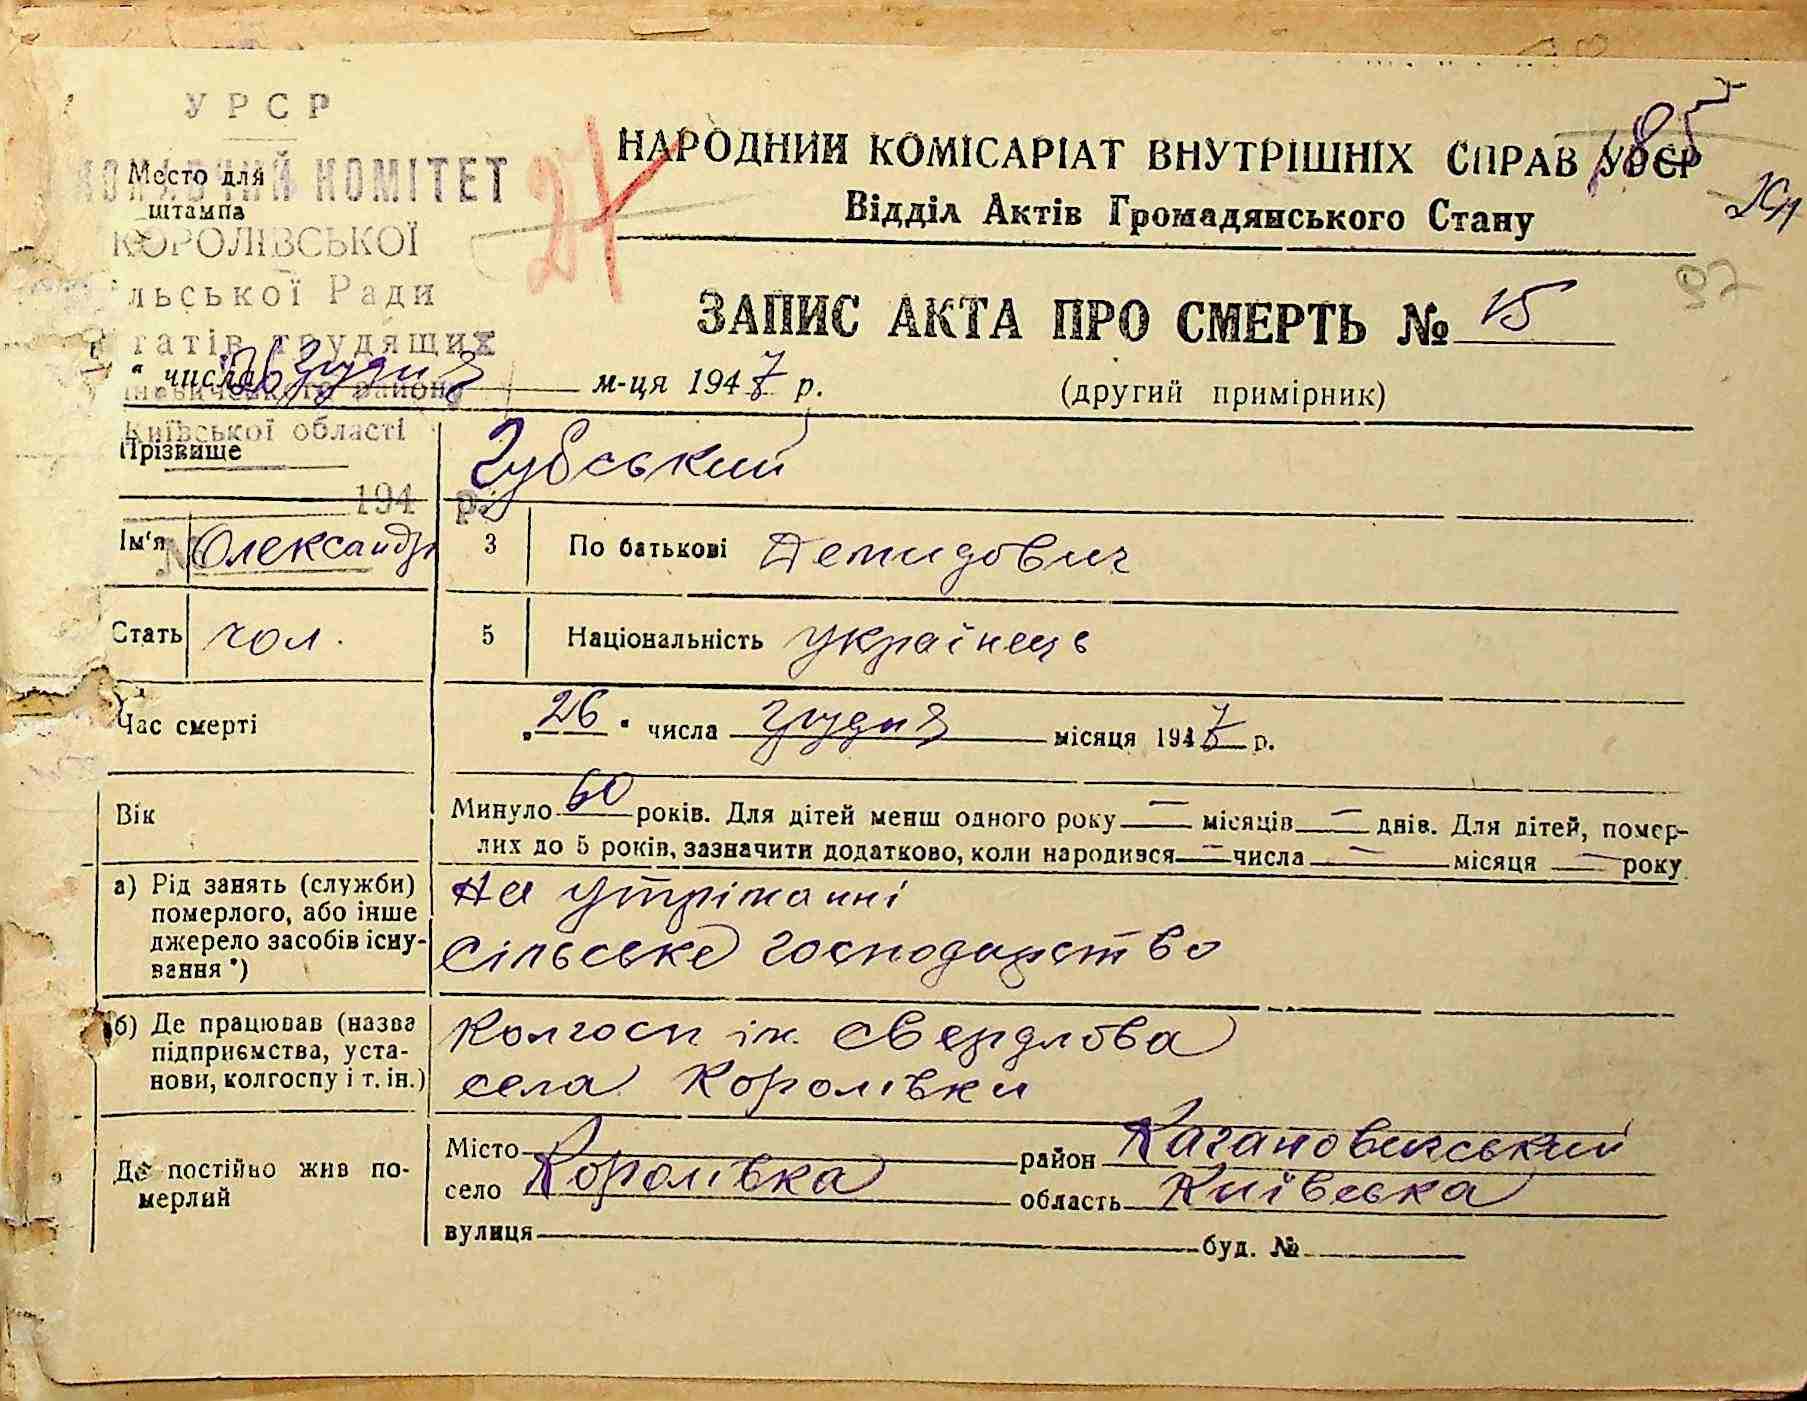 УРСР
КОМІТЕТ
Место для
штампа
КОРОЛІВСЬКОЇ
льської Ради
гатів трудящих
Київської області
194 р.
№
27
185
97
НАРОДНИЙ КОМІСАРІАТ ВНУТРІШНІХ СПРАВ УРСР
Відділ Актів Громадянського Стану
ЗАПИС АКТА ПРО СМЕРТЬ № 15
(другий примірник)
" числа 26 грудня м-ця 1947 р.
Прізвище Губський
Ім'я Олександр 3 По батькові Демидович
Стать чол. 5 Національність українець
Час смерті „26" числа грудня місяця 1947 р.
Вік Минуло 60 років. Для дітей менш одного року — місяців — днів. Для дітей, помер-
лих до 5 років, зазначити додатково, коли народився — числа — місяця — року
а) Рід занять (служби)
померлого, або інше
джерело засобів існу-
вання *)
на утріманні
сільське господарство
б) Де працював (назва
підприємства, уста-
нови, колгоспу і т. ін.)
Колгосп ім. Свердлова
села Королівки
Де постійно жив по-
мерлий
Місто район Кагановичський
село Королівка область Київська
вулиця буд. №